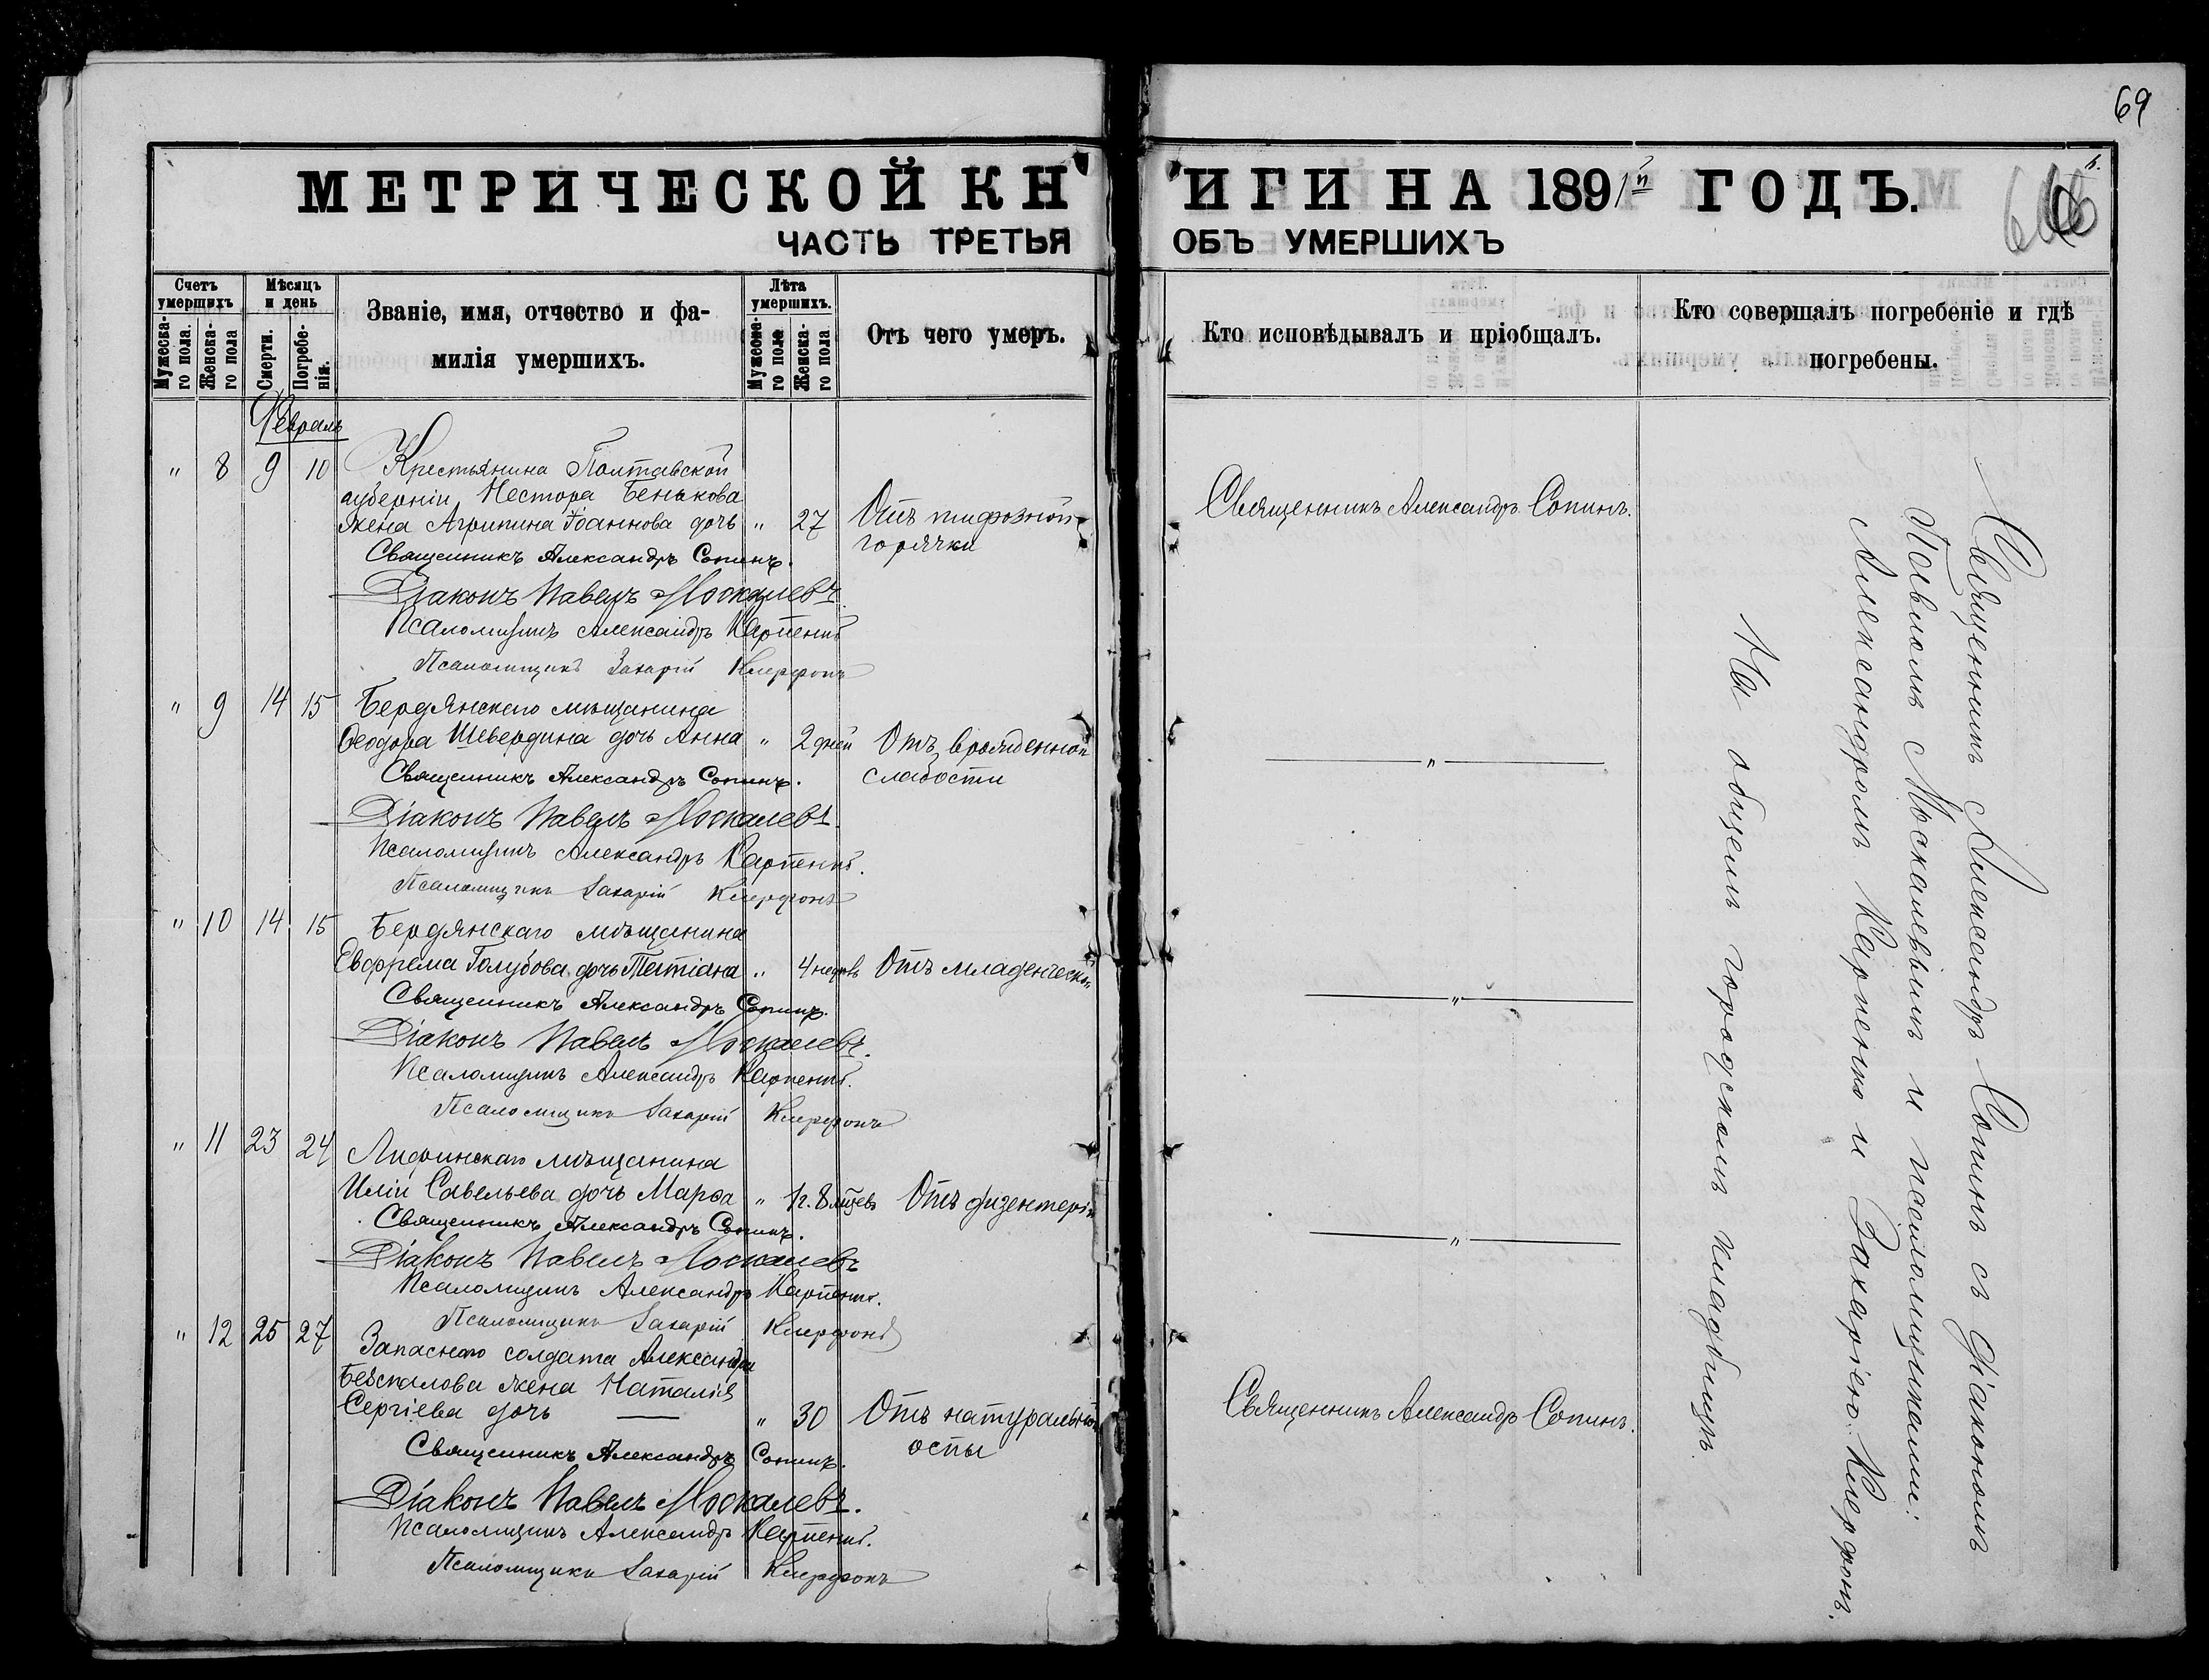 69
МЕТРИЧЕСКОЙ КН
ИГИ НА 1891й ГОДЪ.
ЧАСТЬ ТРЕТЬЯ
ОБЪ УМЕРШИХЪ
Счетъ умершихъ
Мужеска-го пола.
Женска-го пола
Мѣсяцъ и день
Смерти.
Погребе-нія.
Званіе, имя, отчество и фа-
милія умершихъ.
Лѣта умершихъ.
Мужеска-го пола
Женска-го пола
Отъ чего умеръ.
Кто исповѣдывалъ и пріобщалъ.
Кто совершалъ погребеніе и гдѣ
погребены.
Февраль
" 8 9 10 Крестьянина Полтавской
губерніи Нестора Бенькова
жена Агрипина Іоаннова дочь " 27 Отъ тифозной
горячки
Священникъ Александръ Сопинъ.
Священникъ Александръ Сопинъ.
Діаконъ Павелъ Москалевъ.
Псаломщикъ Александръ Карпенко
Псаломщикъ Захарій
" 9 14 15 Бердянскаго мѣщанина
Ѳеодора Шевердина дочь Анна " 2 дней Отъ врожденной
слабости
"
Священникъ Александръ Сопинъ.
Діаконъ Павелъ Москалевъ.
Псаломщикъ Александръ Карпенко.
Псаломщикъ Захарій
" 10 14 15 Бердянскаго мѣщанина
Евфрема Голубова дочь Татіана " 4 недѣль Отъ младенческой
"
Священникъ Александръ Сопинъ.
Діаконъ Павелъ Москалевъ.
Псаломщикъ Александръ Карпенко.
Псаломщикъ Захарій
" 11 23 24 мѣщанина
Иліи Савельева дочь Марѳа " 1 г. 8 мцевъ Отъ дизентеріи
"
Священникъ Александръ Сопинъ.
Діаконъ Павелъ Москалевъ
Псаломщикъ Александръ Карпенко.
Псаломщикъ Захарій
" 12 25 27 Запаснаго солдата Александра
Безпалова жена Наталія
Сергіева дочь " 30 Отъ натуральной
оспы
Священникъ Александръ Сопинъ.
Священникъ Александръ Сопинъ.
Діаконъ Павелъ Москалевъ.
Псаломщикъ Александръ Карпенко.
Псаломщикъ Захарій
Священникъ Александръ Сопинъ съ діакономъ
Павломъ Москалевымъ и псаломщиками:
Александромъ Карпенко и Захаріею
На общемъ городскомъ кладбищѣ.